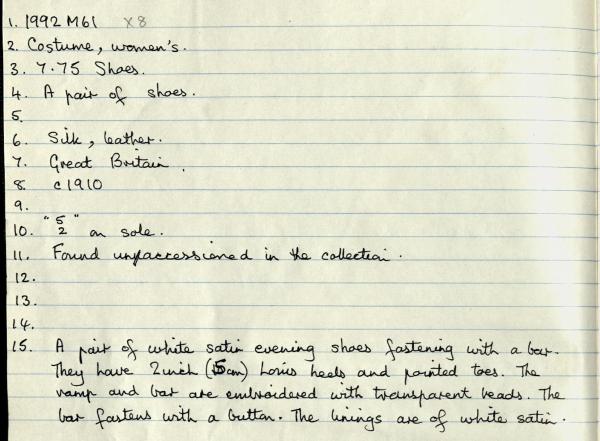 1. 1992 M61 x8
2. Costume, women's.
3. 7.75 Shoes.
4. A pair of shoes.
5.
6. Silk, leather.
7. Great Britain.
8. c1910
9.
10. "5/2" on sole.
11. Found unaccessioned in the collection.
12.
13.
14.
15. A pair of white satin evening shoes fastening with a bar.
They have 2 inch (5cm) Louis heels and pointed toes. The
vamp and bar are embroidered with transparent beads. The
bar fastens with a button. The linings are of white satin.